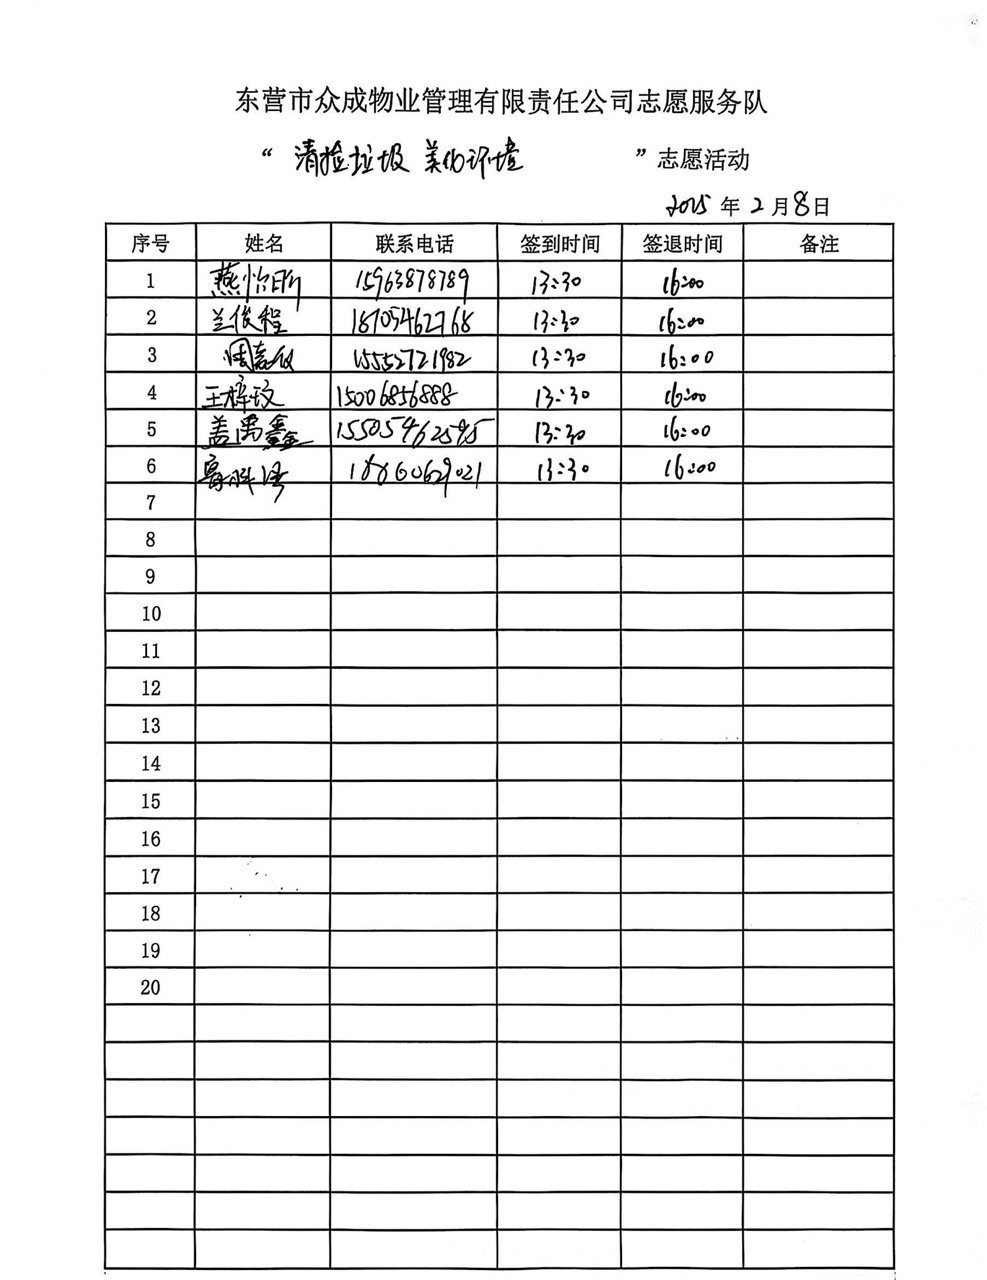 东营市众成物业管理有限责任公司志愿服务队
“ 清捡垃圾 美化环境 ”志愿活动
2025 年 2 月 8 日
序号 姓名 联系电话 签到时间 签退时间 备注
1 燕怡昕 15963878789 13:30 16:00
2 兰俊程 18705462768 13:30 16:00
3 15552721982 13:30 16:00
4 王梓玟 15006856888 13:30 16:00
5 盖禹鑫 15505462595 13:30 16:00
6 18860629021 13:30 16:00
7
8
9
10
11
12
13
14
15
16
17
18
19
20